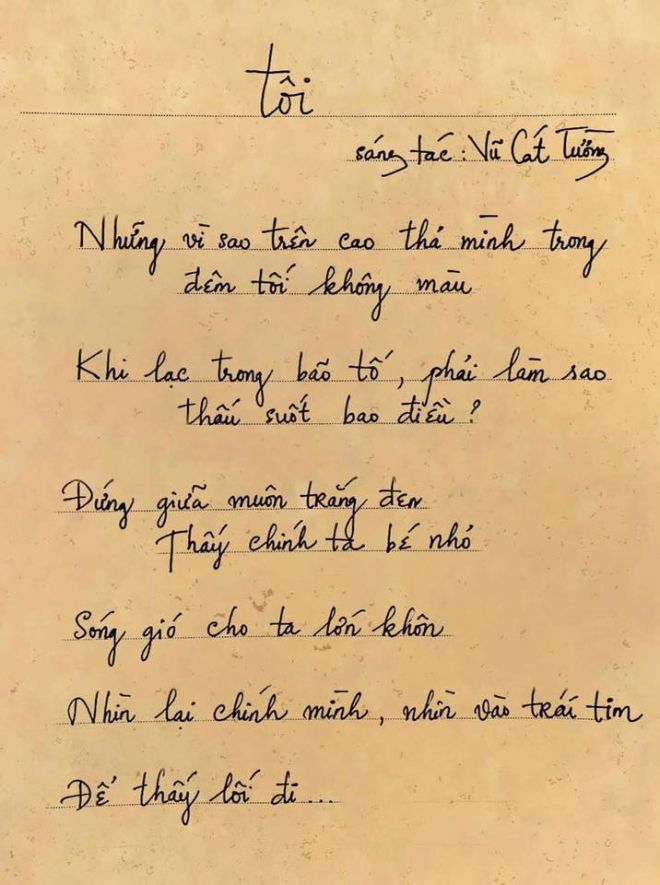 tôi
sáng tác : Vũ Cát Tường
Những vì sao trên cao thả mình trong
đêm tối không màu
Khi lạc trong bão tố , phải làm sao
thấu suốt bao điều ?
Đứng giữa muôn trắng đen
Thấy chính ta bé nhỏ
Sóng gió cho ta lớn khôn
Nhìn lại chính mình , nhìn vào trái tim
Để thấy lối đi ...